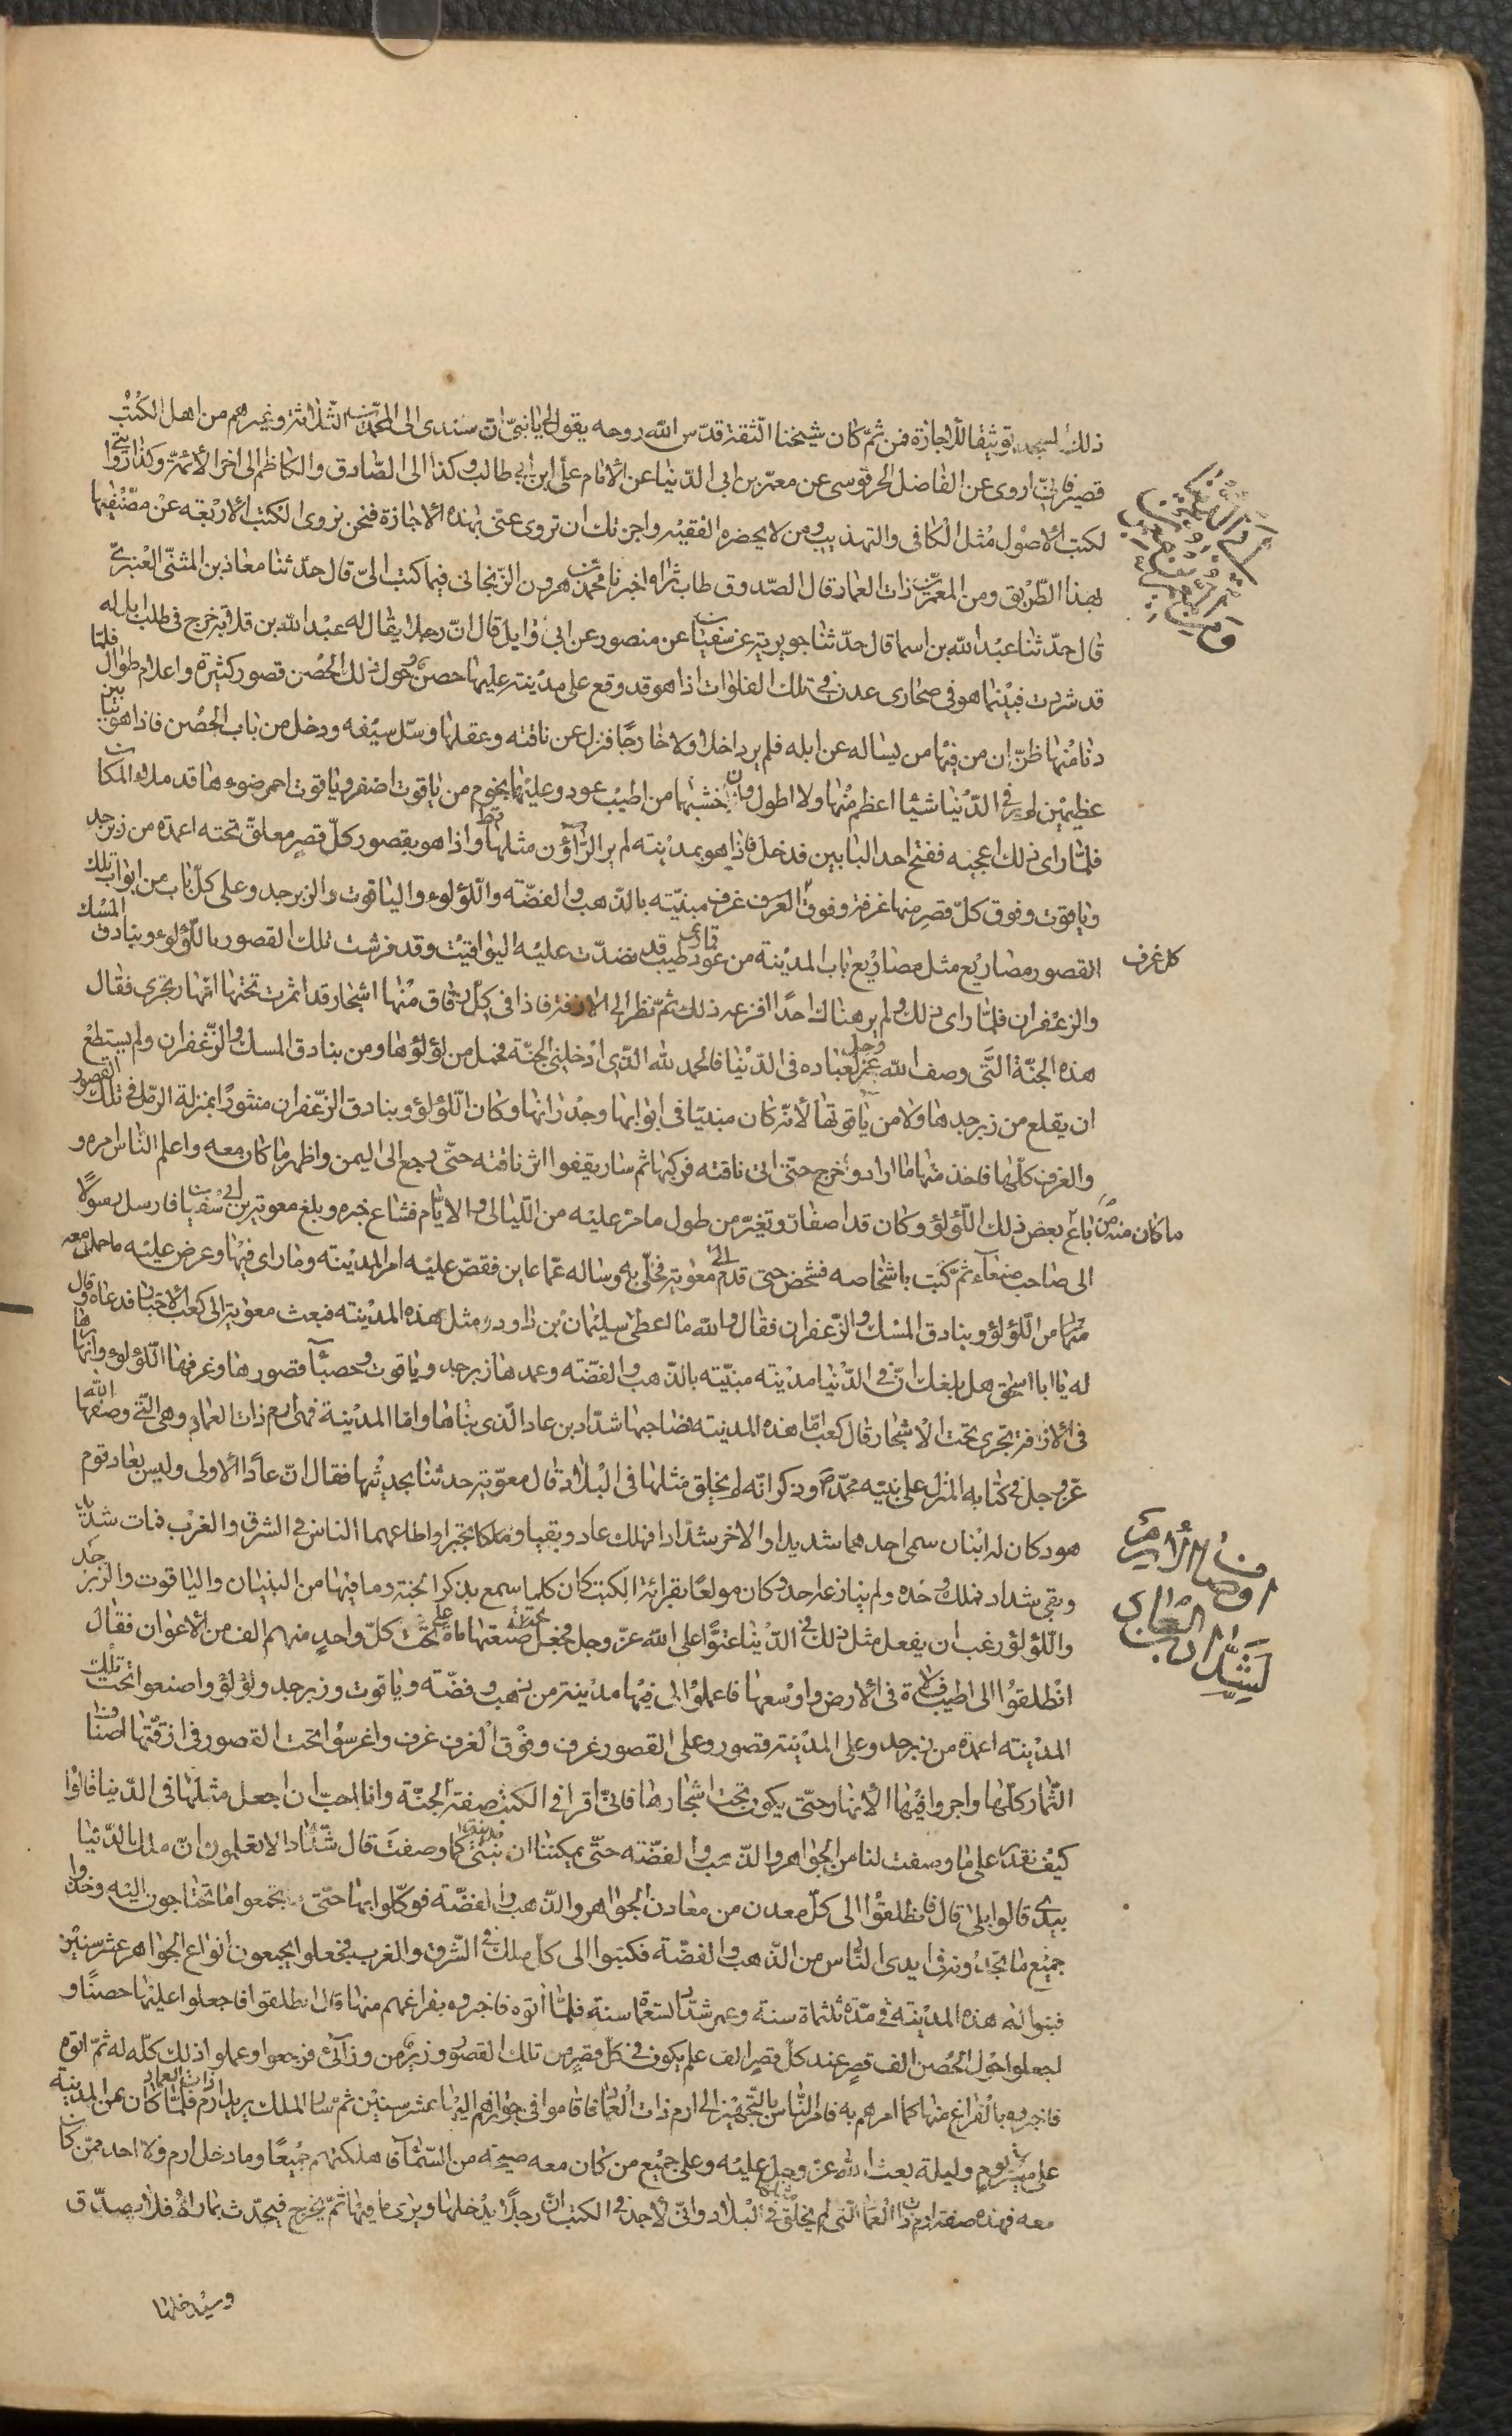 ذلك لسيجد توثيقا للاجازة فمن ثمّ كان شيخنا الثقة قدّس الله روحه يقول لي يا نبيّ ان سندي الى المحمدين الثلاثة وغيرهم من اهل الكتب
قصير فانّي اروى عن الفاضل الحرقوسى عن معمّر بن ابى الدّنيا عن الامام علىّ ابن ابي طالب وكذا الى الصّادق والكاظم الى اخر الائمّة وكذا
لكتب الاصول مثل الكافى والتهذيب ومن لا يحضره الفقيه واجزتك ان تروى عنّى بهذه الاجازة فنحن نروى الكتب الاربعة عن مصنّفيها
بهذا الطّريق ومن المعمّرين ذات العماد قال الصّدوق طاب ثراه اخبرنا محمد بن هرون الزّنجانى فيما كتب الىّ قال حدّثنا معاذ بن المثنّى العنبرىّ
قال حدّثنا عبد الله بن اسما قال حدّثنا جويرية عن سفيان عن منصور عن ابى وايل قال انّ رجلا يقال له عبد الله بن قلابة خرج فى طلب ابل له
قد شردت فبينما هو فى صحارى عدن فى تلك الفلوات اذا هو قد وقع على مدينة عليها حصن حول ذلك الحصن قصور كثيرة واعلام طوال فلمّا
دنا منها ظنّ ان من فيها من يساله عن ابله فلم ير داخلا ولا خارجًا فنزل عن ناقته وعقلها وسلّ سيفه ودخل من باب الحصن فاذا هو ببابين
عظيمين لم ير فى الدّنيا شيئا اعظم منها ولا اطول واذا خشبها من اطيب عود وعليها نجوم من ياقوت اصفر وياقوت احمر ضوءها قد ملا المكان
فلمّا راى ذلك اعجبه ففتح احد البابين فدخل فاذا هو بمدينة لم ير الرّاؤن مثلها قط واذا هو بقصور كلّ قصر معلق تحته اعمدة من زبرجد
وياقوت وفوق كلّ قصر منها غرفة وفوق الغرف غرف مبنيّة بالذّهب والفضّة واللؤلوء والياقوت والزبرجد وعلى كلّ باب من ابواب تلك
القصور مصاريع مثل مصاريع باب المدينة من عود طيب قد نضدّت عليه اليواقيت وقد فرشت تلك القصور باللّؤلوء وبنادق المسك
كل غرف
والزعفران فلمّا راى ذلك ولم ير هناك احدًا افزعه ذلك ثمّ نظر الى الازقة فاذا فى كلّ زقاق منها اشجار قد اثمرت تحتها انهار تجرى فقال
هذه الجنّة التّى وصف الله عزّ وجل لعباده فى الدّنيا فالحمد لله الذّى ادخلنى الجنّة فحمل من لؤلؤها ومن بنادق المسك والزّعفران ولم يستطع
ان يقلع من زبرجدها ولا من ياقوتها لانّه كان مبنيّا فى ابوابها وجدرانها وكان اللّؤلؤ وبنادق الزّعفران منثورًا بمنزلة الرّمل فى تلك القصور
والغرف كلّها فاخذ منها ما اراد وخرج حتّى اتى ناقته فركبها ثم سار يقفوا اثر ناقته حتّى رجع الى اليمن واظهر ما كان معه واعلم النّاس امره و
باع بعض ذلك اللّؤلؤ وكان قد اصفارّ وتغيّر من طول ما مرّ عليه من اللّيالى والايّام فشاع خبره وبلغ معوية بن ابى سفيان فارسل رسولًا
ما كان منه من
الى صاحب صنعاء ثمّ كتب باشخاصه فشخص حتى قدم الى معوية فخلّى به وساله عمّا عاين فقصّ عليه امر المدينة وما راى فيها وعرض عليه ما حمله معه
منها من اللّؤلؤ وبنادق المسك والزّعفران فقال والله ما اعطى سليمان بن داود مثل هذه المدينة فبعث معوية الى كعب الاحبار فدعاه وقال
له يا ابا اسحق هل بلغك انّ فى الدّنيا مدينة مبنيّة بالذّهب والفضّة وعمدها زبرجد وياقوت وحصبآ قصورها وغرفها اللّؤلوء وانهارها
فى الازقة تجرى تحت الاشجار قال كعب امّا هذه المدينة فصاحبها شدّاد بن عاد الّذى بناها وامّا المدينة فهى ارم ذات العماد وهى الّتى وصفها الله
عزّ وجل فى كتابه المنزل على نبيّه محمّد ص وذكر انّه لم يخلق مثلها فى البلاد قال معوية حدثنا بحديثها فقال انّ عادًا الاولى وليس بعاد قوم
هود كان له ابنان سمى احدهما شديدا والاخر شدّادا فهلك عاد وبقيا وملكا تجبّرا واطاعهما الناس فى الشرق والغرب فمات شديد
وبقى شداد فملك وحده ولم ينازعه احد وكان مولعًا بقرائة الكتب كان كلما سمع بذكر الجنة وما فيها من البنيان والياقوت والزبرجد
اوصاف ارم
لشدّاد بن العاد
واللّؤلؤ رغب ان يفعل مثل ذلك فى الدّنيا عتوًّا على الله عزّ وجل فجعل على صنعتها مائة تحت كلّ واحدٍ منهم الف من الاعوان فقال
انطلقوا الى اطيب فلاة فى الارض واوسعها فاعملوا لى فيها مدينة من ذهب وفضّة وياقوت وزبرجد ولؤلؤ واصنعوا تحت تلك
المدينة اعمدة من زبرجد وعلى المدينة قصور وعلى القصور غرف وفوق الغرف غرف واغرسوا تحت القصور فى ازقّتها اصناف
الثّمار كلّها واجروا فيها الانهار حتّى يكون تحت اشجارها فانّى اقرا فى الكتب صفة الجنّة وانا احبّ ان اجعل مثلها فى الدّنيا قالوا
كيف نقدر على ما وصفت لنا من الجواهر والذّهب والفضّة حتّى يمكننا ان نبنى مدينة كما وصفت قال شدّاد الا تعلمون انّ ملك الدّنيا
بيدى قالوا بلى قال فانطلقوا الى كلّ معدن من معادن الجواهر والذّهب والفضّة فوكّلوا بها حتّى تجمعوا ما تحتاجون اليه وخذوا
جميع ما تجدونه فى ايدى النّاس من الذّهب والفضّة فكتبوا الى كلّ ملك فى الشّرق والغرب فجعلوا يجمعون انواع الجواهر عشر سنين
فبنوا له هذه المدينة فى مدّة ثلثمائة سنة وعمر شدّاد تسعمائة سنة فلمّا اتوه فاخبروه بفراغهم منها قال انطلقوا فاجعلوا عليها حصنًا و
اجعلوا حول الحصن الف قصر عند كلّ قصر الف علم يكون فى كلّ قصر من تلك القصور وزير من وزرآئى فرجعوا وعملوا ذلك كلّه له ثمّ اتوه
فاخبروه بالفراغ منها كما امرهم به فامر النّاس بالتّجهيز الى ارم ذات العماد فاقاموا فى جهازهم اليها عشر سنين ثم سار الملك يريد ارم ذات العماد فلمّا كان من المدينة
على مسيرة يوم وليلة بعث الله عزّ وجل عليه وعلى جميع من كان معه صيحة من السّمآ فاهلكتهم جميعًا وما دخل ارم ولا احد ممّن كان
معه فهذه صفة ارم ذات العماد التى لم يخلق مثلها فى البلاد وانّى لاجد فى الكتب انّ رجلًا يدخلها ويرى ما فيها ثمّ يخرج فيحدّث بما راى فلا يصدّق
وسيدخلها